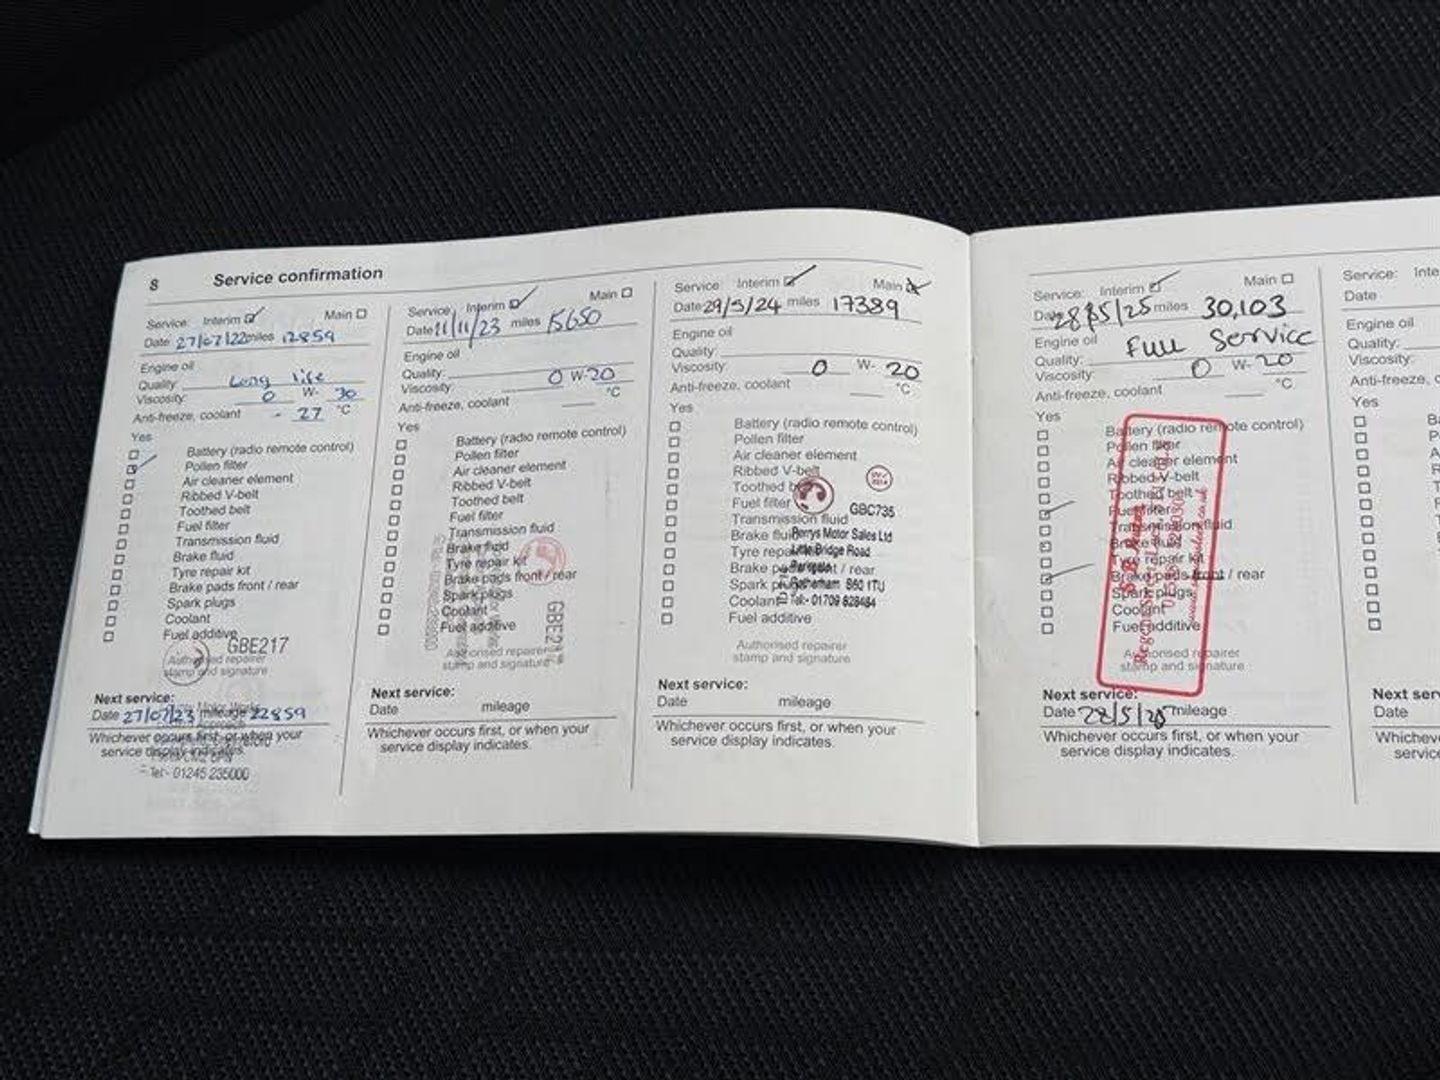 8 Service confirmation
Service: Interim Main
Date 27/07/22 miles 12859
Engine oil
Quality: Long life
Viscosity: 0 W- 30
Anti-freeze, coolant - 27 °C
Yes
Battery (radio remote control)
Pollen filter
Air cleaner element
Ribbed V-belt
Toothed belt
Fuel filter
Transmission fluid
Brake fluid
Tyre repair kit
Brake pads front / rear
Spark plugs
Coolant
Fuel additive
GBE217
Authorised repairer
stamp and signature
Next service:
Date 27/07/23 mileage 22859
Whichever occurs first, or when your
service display indicates.
Tel:- 01245 235000
Service: Interim Main
Date 11/11/23 miles 15650
Engine oil
Quality:
Viscosity: 0 W-20
Anti-freeze, coolant °C
Yes
Battery (radio remote control)
Pollen filter
Air cleaner element
Ribbed V-belt
Toothed belt
Fuel filter
Transmission fluid
Brake fluid
Tyre repair kit
Brake pads front / rear
Spark plugs
Coolant
Fuel additive
Authorised repairer
stamp and signature
Next service:
Date mileage
Whichever occurs first, or when your
service display indicates.
Service: Interim Main
Date 29/5/24 miles 17389
Engine oil
Quality:
Viscosity: 0 W- 20
Anti-freeze, coolant °C
Yes
Battery (radio remote control)
Pollen filter
Air cleaner element
Ribbed V-belt
Toothed belt
Fuel filter
GBC735
Transmission fluid
Brake fluid
Perrys Motor Sales Ltd
Tyre repair kit
Little Bridge Road
Brake pads front / rear
Spark plugs
Rotherham S60 1TU
Coolant
Tel:- 01709 828484
Fuel additive
Authorised repairer
stamp and signature
Next service:
Date mileage
Whichever occurs first, or when your
service display indicates.
Service: Interim Main
Date 28/5/25 miles 30,103
Engine oil Full Service
Quality:
Viscosity: 0 W- 20
Anti-freeze, coolant °C
Yes
Battery (radio remote control)
Pollen filter
Air cleaner element
Ribbed V-belt
Toothed belt
Fuel filter
Transmission fluid
Brake fluid
Tyre repair kit
Brake pads front / rear
Spark plugs
Coolant
Fuel additive
Authorised repairer
stamp and signature
Next service:
Date 28/5/26 mileage
Whichever occurs first, or when your
service display indicates.
Service: Inte
Date
Engine oil
Quality:
Viscosity:
Anti-freeze, c
Yes
Next ser
Date
Whichev
service